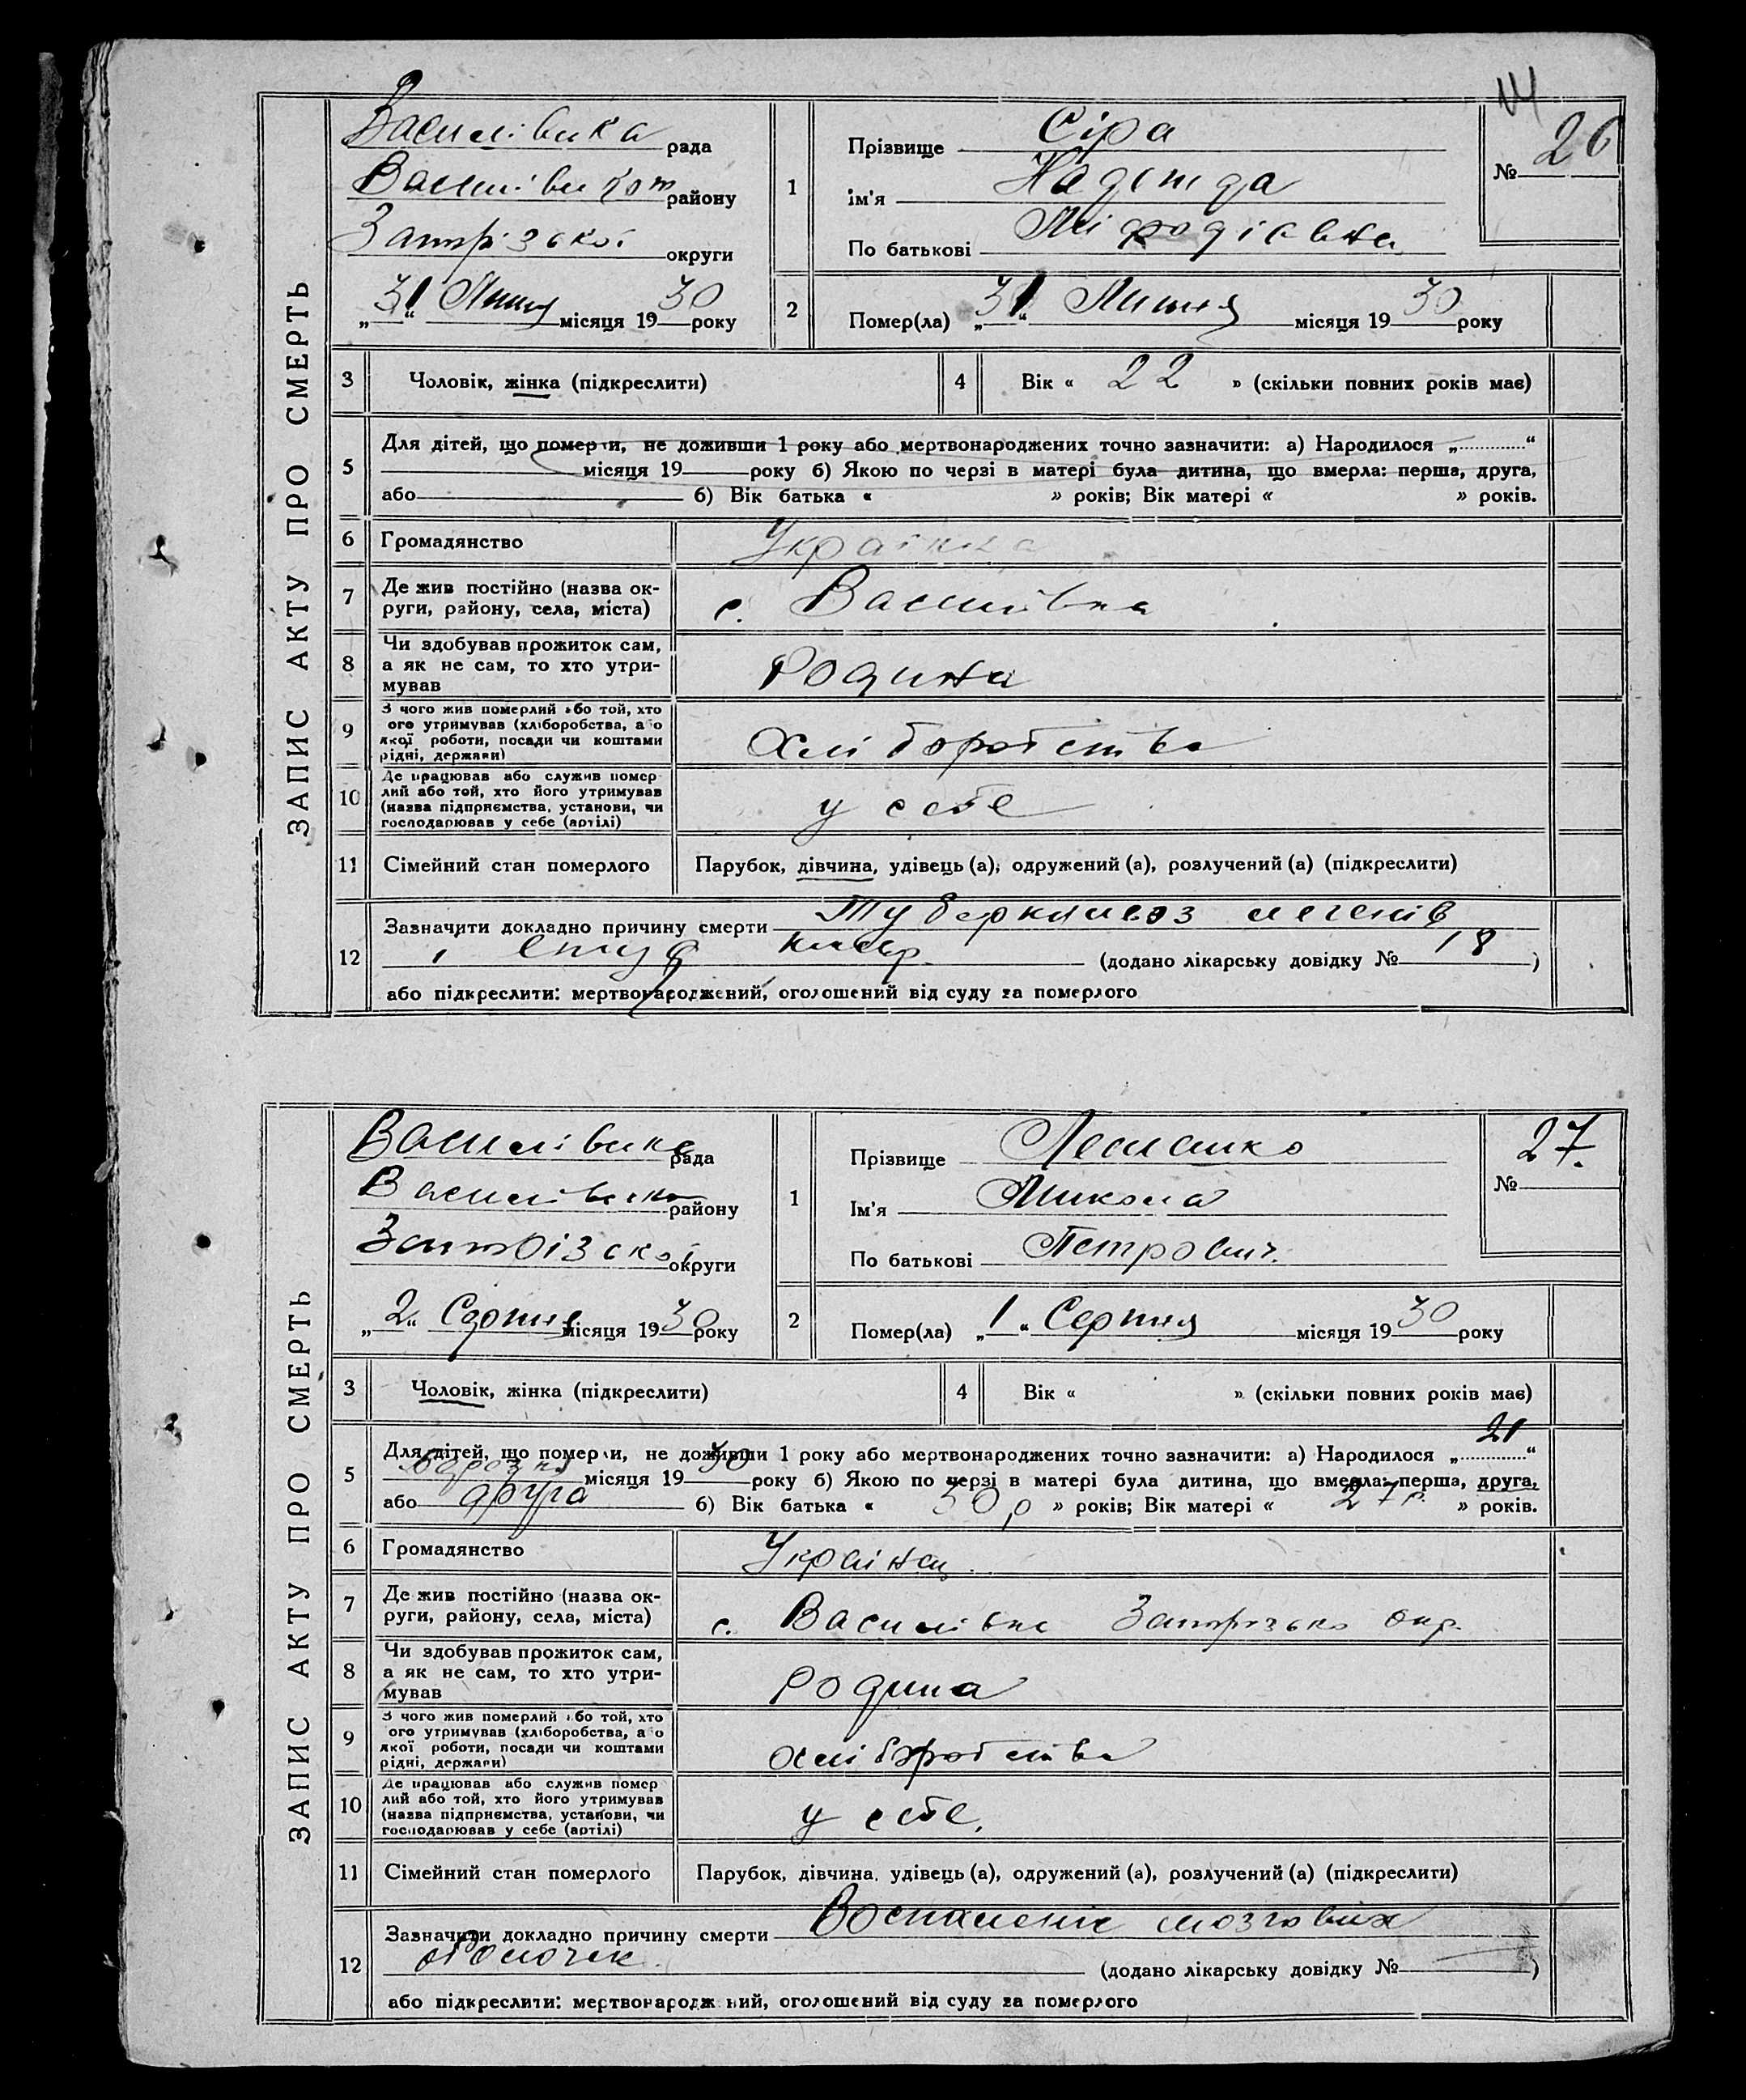 14
ЗАПИС АКТУ ПРО СМЕРТЬ
Василівська рада
Василівськ району
Запорізської округи
„31“ Липня місяця 1930 року
1
Прізвище Сіра
ім'я Надежда
По батькові
№ 26
2
Помер(ла) „31“ Липня місяця 1930 року
3
Чоловік, жінка (підкреслити)
4
Вік « 22 » (скільки повних років має)
5
Для дітей, що померли, не доживши 1 року або мертвонароджених точно зазначити: а) Народилося „............“
місяця 19 року б) Якою по черзі в матері була дитина, що вмерла: перша, друга,
або б) Вік батька « » років; Вік матері « » років.
6
Громадянство
Українка
7
Де жив постійно (назва ок-
руги, району, села, міста)
с. Василівка
8
Чи здобував прожиток сам,
а як не сам, то хто утри-
мував
Родина
9
З чого жив померлий або той, хто
ого утримував (хліборобства, або
якої роботи, посади чи коштами
рідні, держави)
хліборобства
10
Де працював або служив помер
лий або той, хто його утримував
(назва підприємства, установи, чи
господарював у себе (артілі)
у себе
11
Сімейний стан померлого
Парубок, дівчина, удівець (а), одружений (а), розлучений (а) (підкреслити)
12
Зазначити докладно причину смерти Туберкульоз легенів
і (додано лікарську довідку № 18)
або підкреслити: мертвонароджений, оголошений від суду за померлого
ЗАПИС АКТУ ПРО СМЕРТЬ
Василівська рада
Василівсько району
Запорізської округи
„2“ Серпня місяця 1930 року
1
Прізвище
Ім'я Микола
По батькові Петрович.
№ 27.
2
Помер(ла) „1“ Серпня місяця 1930 року
3
Чоловік, жінка (підкреслити)
4
Вік « » (скільки повних років має)
5
Для дітей, що померли, не доживши 1 року або мертвонароджених точно зазначити: а) Народилося „21“
березня місяця 1930 року б) Якою по черзі в матері була дитина, що вмерла: перша, друга,
або друга б) Вік батька « 30 р » років; Вік матері « 27 р. » років.
6
Громадянство
Українец.
7
Де жив постійно (назва ок-
руги, району, села, міста)
с. Василівка Запорізько окр.
8
Чи здобував прожиток сам,
а як не сам, то хто утри-
мував
Родина
9
З чого жив померлий або той, хто
ого утримував (хліборобства, або
якої роботи, посади чи коштами
рідні, держави)
хліборобства
10
Де працював або служив помер
лий або той, хто його утримував
(назва підприємства, установи, чи
господарював у себе (артілі)
у себе.
11
Сімейний стан померлого
Парубок, дівчина, удівець (а), одружений (а), розлучений (а) (підкреслити)
12
Зазначити докладно причину смерти Воспаленіе мозгових
оболочек. (додано лікарську довідку № )
або підкреслити: мертвонароджений, оголошений від суду за померлого